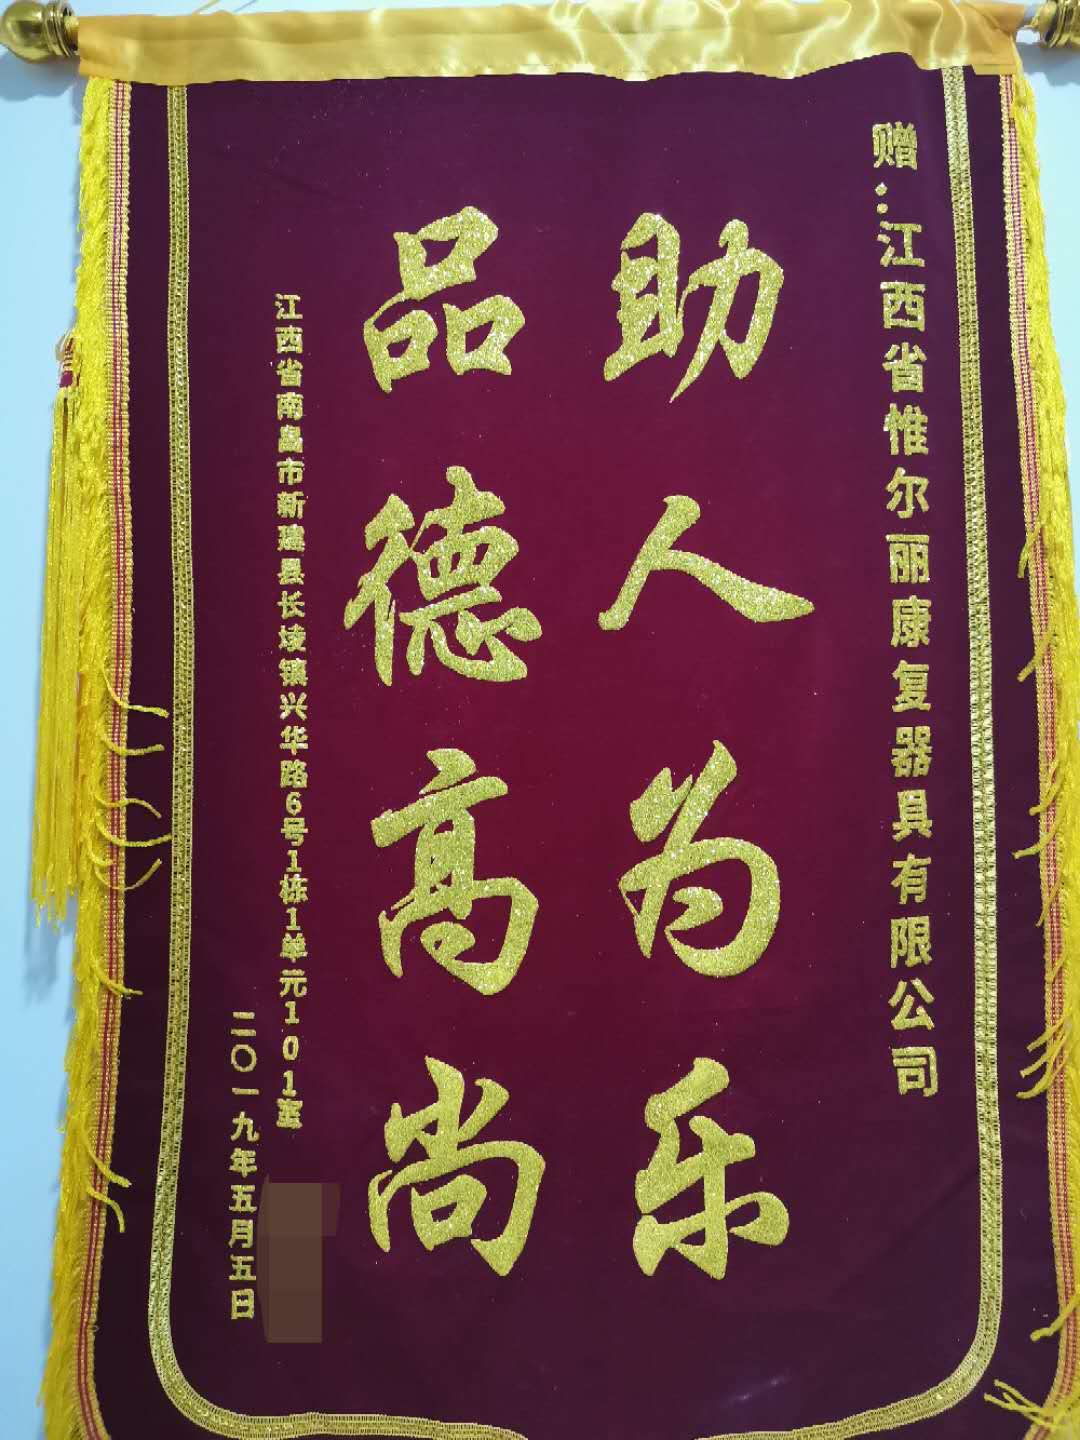 赠:江西省惟尔丽康复器具有限公司
助人为乐
品德高尚
江西省南昌市新建县长堎镇兴华路6号1栋11单元101室
二〇一九年五月五日